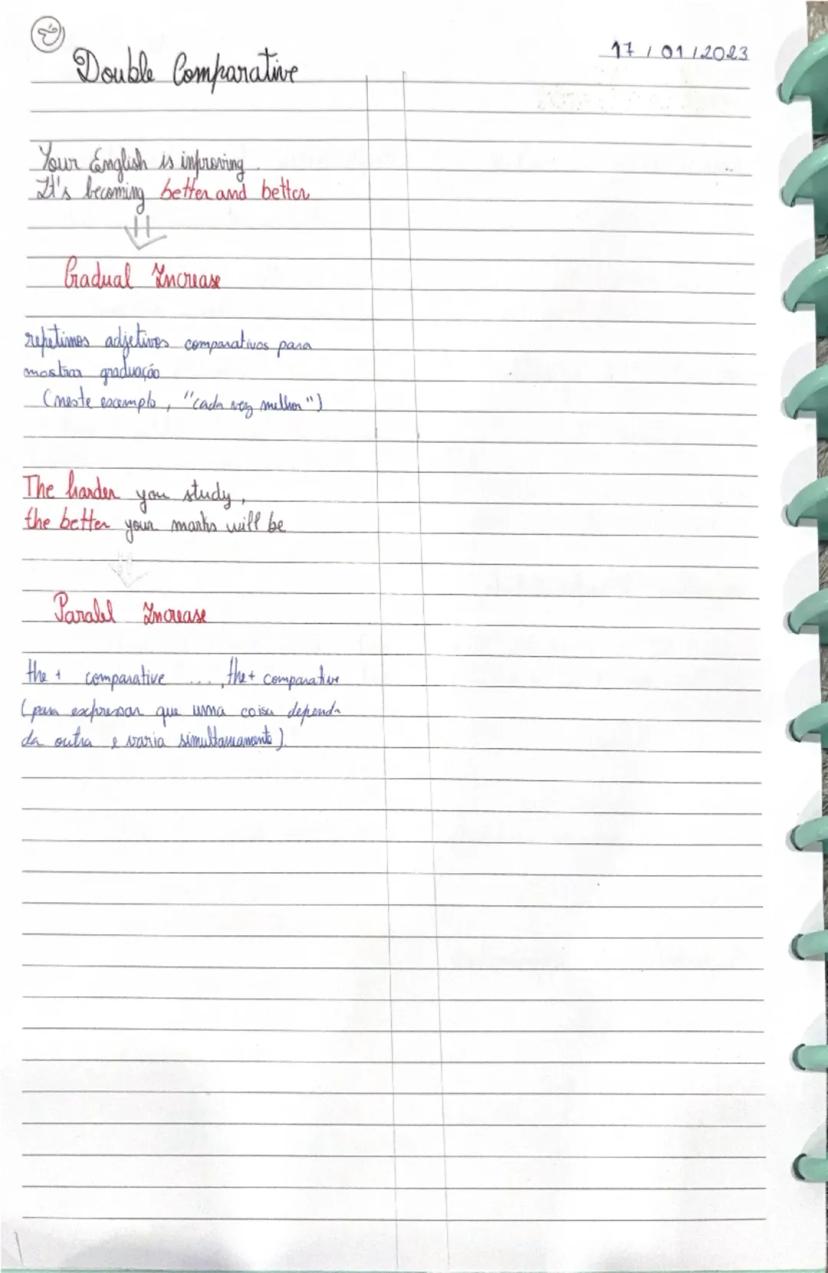 17/01/2023
Double Comparative
Your English is improving.
It's becoming better and better
Gradual Increase
repetimos adjetivos comparativos para
mostrar graduação
(neste exemplo, "cada vez melhor")
The harder you study,
the better your marks will be
Paralel Increase
the + comparative ..., the + comparative
(para expressar que uma coisa depende
da outra e varia simultaneamente).